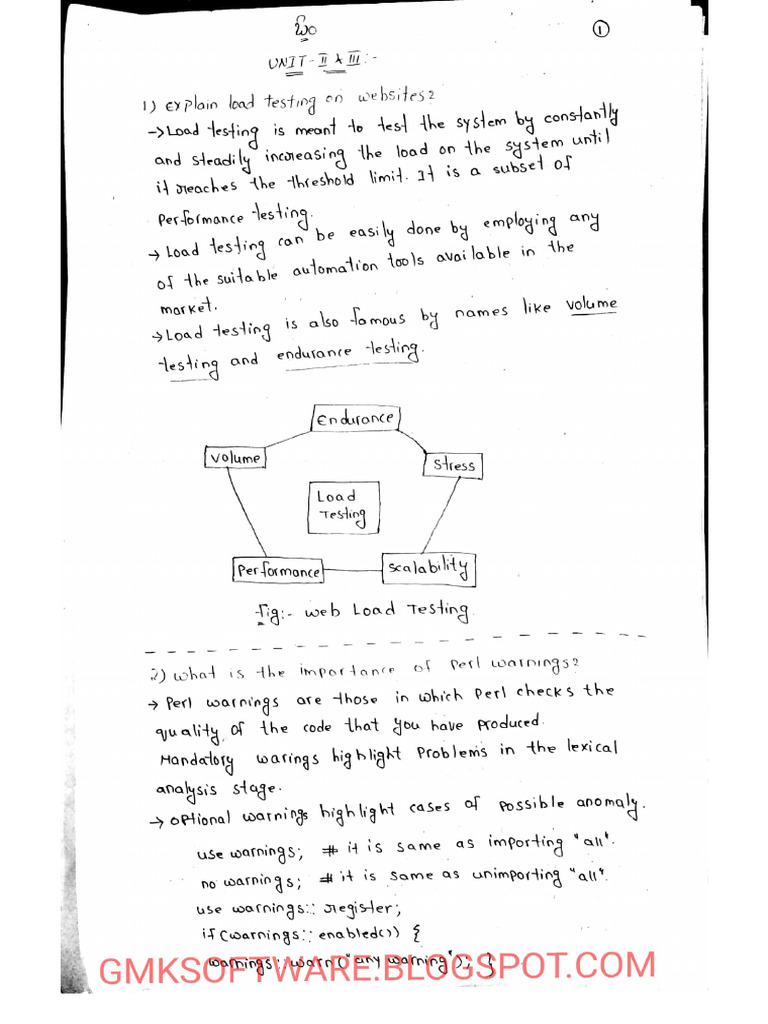 ఓం
1
UNIT-II & III:-
1) Explain load testing on websites?
→ Load testing is meant to test the system by constantly
and steadily increasing the load on the system until
it reaches the threshold limit. It is a subset of
Performance testing.
→ Load testing can be easily done by employing any
of the suitable automation tools available in the
market.
→ Load testing is also famous by names like volume
testing and endurance testing.
Endurance
Volume
Stress
Load
Testing
Performance
Scalability
Fig:- Web Load Testing
2) What is the importance of Perl warnings?
→ Perl warnings are those in which Perl checks the
quality of the code that you have produced.
Mandatory warings highlight Problems in the lexical
analysis stage.
→ optional warnings highlight cases of possible anomaly.
use warnings; # it is same as importing "all".
no warnings; # it is same as unimporting "all".
use warnings:: register;
if (warnings:: enabled()) {
warnings:: warn("any warning"); }
GMKSOFTWARE.BLOGSPOT.COM